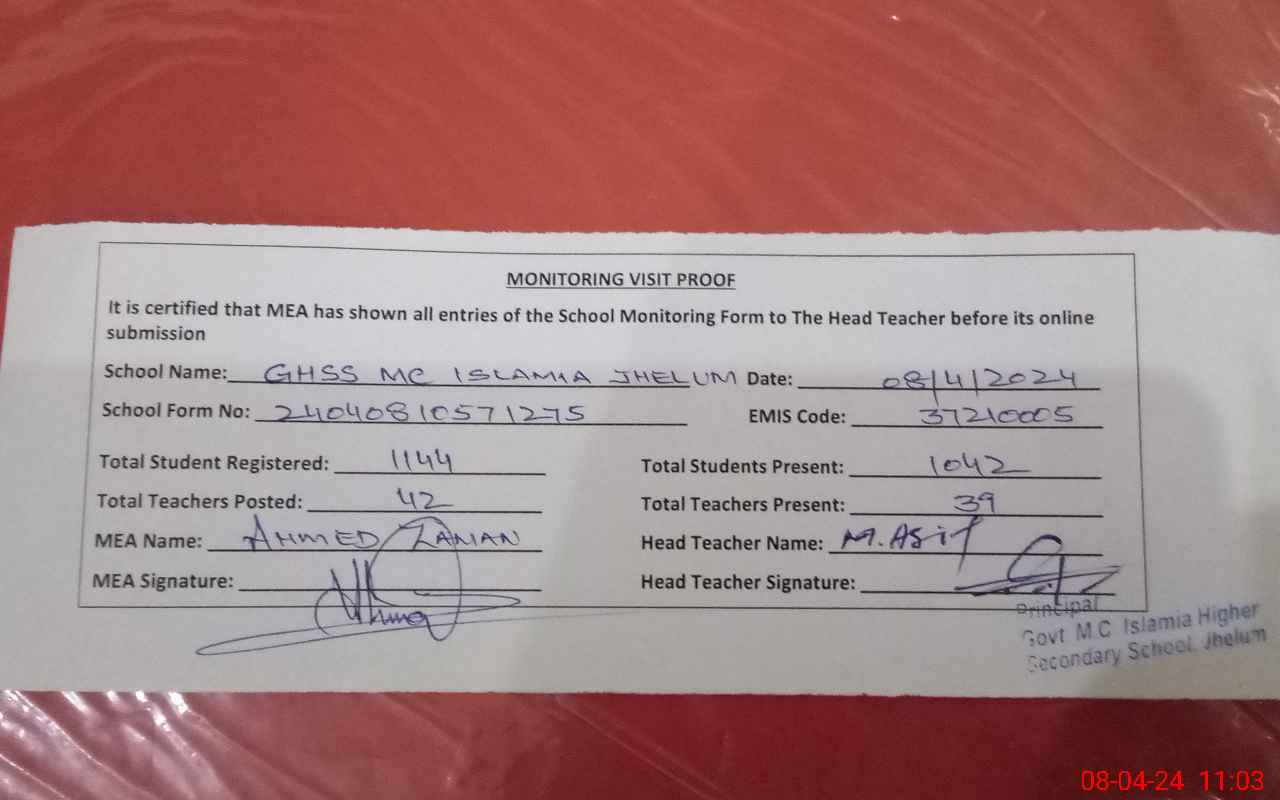 MONITORING VISIT PROOF
It is certified that MEA has shown all entries of the School Monitoring Form to The Head Teacher before its online
submission
School Name: GHSS MC ISLAMIA JHELUM Date: 08/4/2024
School Form No: 24040810571275 EMIS Code: 37210005
Total Student Registered: 1144 Total Students Present: 1042
Total Teachers Posted: 42 Total Teachers Present: 39
MEA Name: AHMED ZAMAN Head Teacher Name: M. ASif
MEA Signature: Head Teacher Signature:
Principal
Govt M.C Islamia Higher
Secondary School, Jhelum
08-04-24 11:03